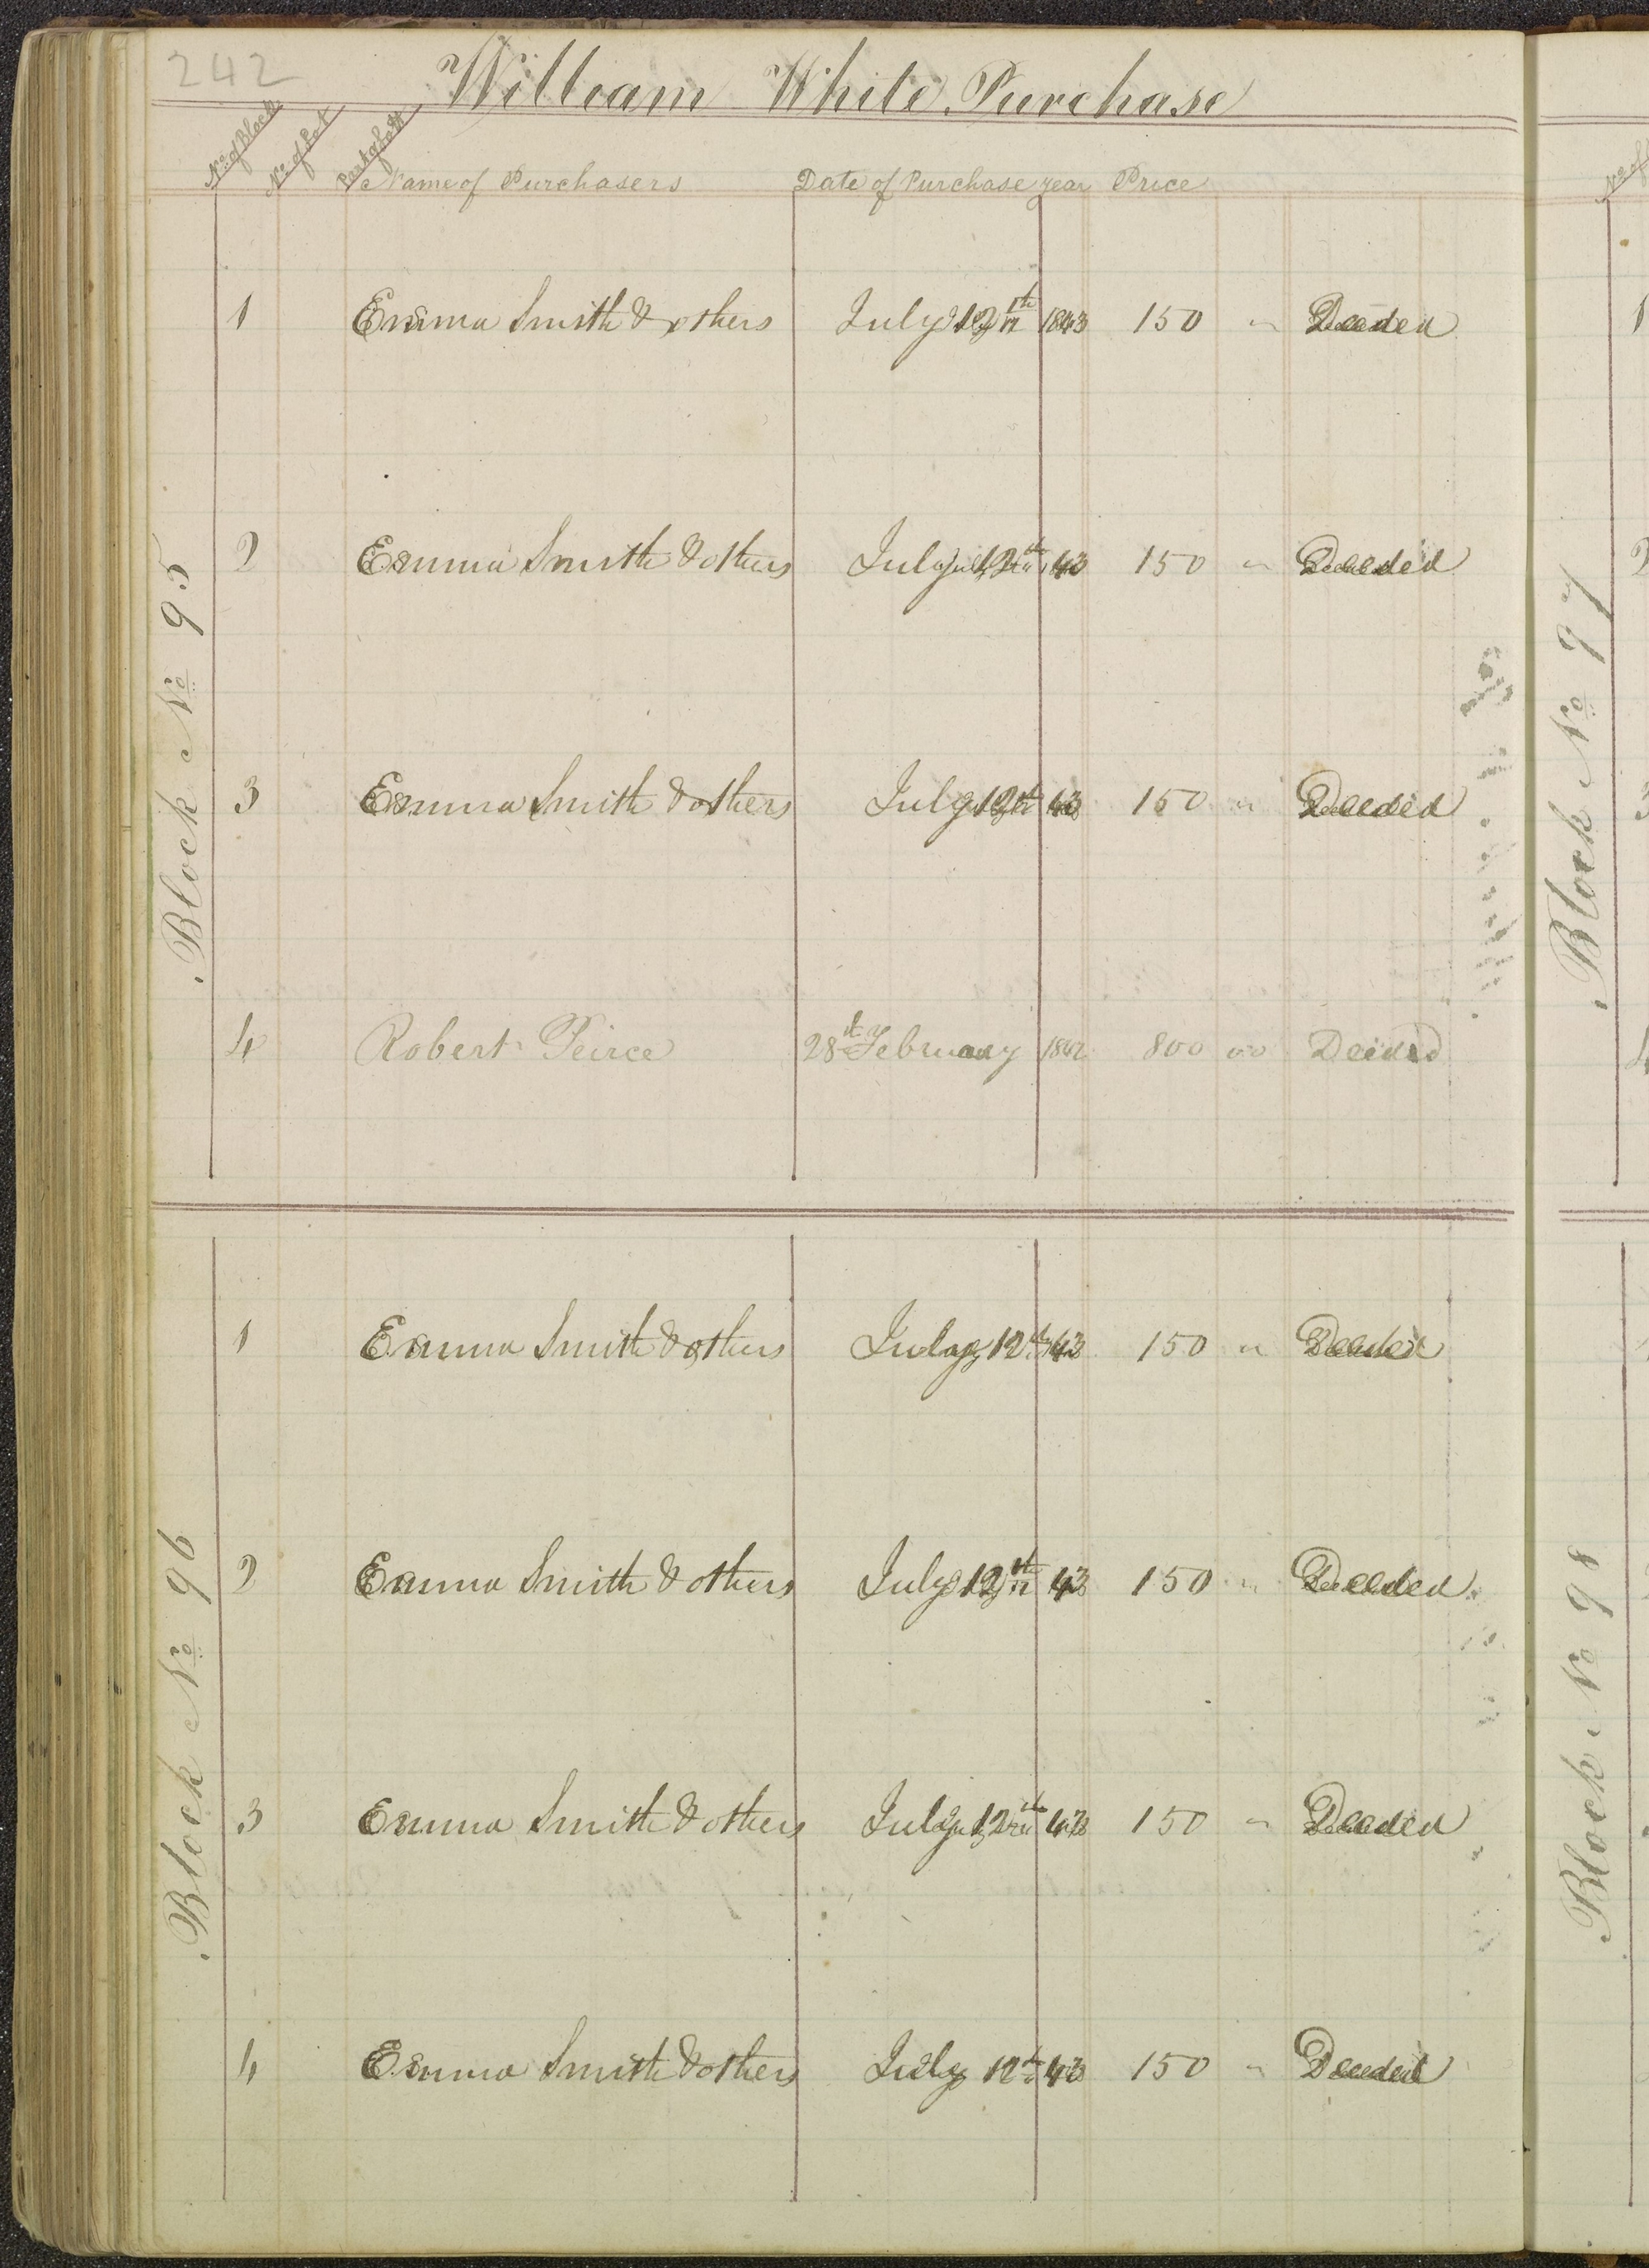 242
William White Purchase
No. of Block No. of Lot Part of Lot Name of Purchasers Date of Purchase year Price
Block No 95
1 Emma Smith & others July 12th 1843 150 " Deeded
2 Emma Smith & others July 12th 43 150 " Deeded
3 Emma Smith & others July 12th 43 150 " Deeded
4 Robert Peirce 28th February 1842 800 00 Deeded
Block No 96
1 Emma Smith & others July 12th 43 150 " Deeded
2 Emma Smith & others July 12th 43 150 " Deeded
3 Emma Smith & others July 12th 43 150 " Deeded
4 Emma Smith & others July 12th 43 150 " Deeded
No of
Block No 97
1
2
3
4
Block No 98